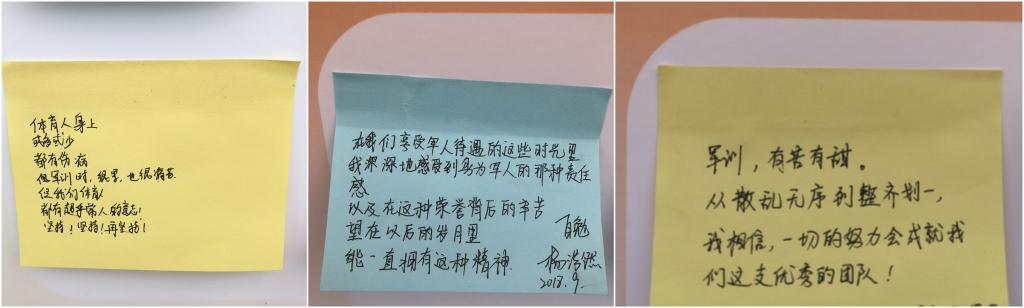 体育人身上
或多或少
都有伤病
但军训时，很累，也很痛苦
但我们体育人
都有超乎常人的意志！
坚持！坚持！再坚持！
在我们享受军人待遇的这些时光里
我深深地感受到身为军人的那种责任
感
以及在这种荣誉背后的辛苦
望在以后的岁月里
能一直拥有这种精神
自勉
杨浩然
2018.9.
军训，有苦有甜。
从散乱无序到整齐划一，
我相信，一切的努力会成就我
们这支优秀的团队！